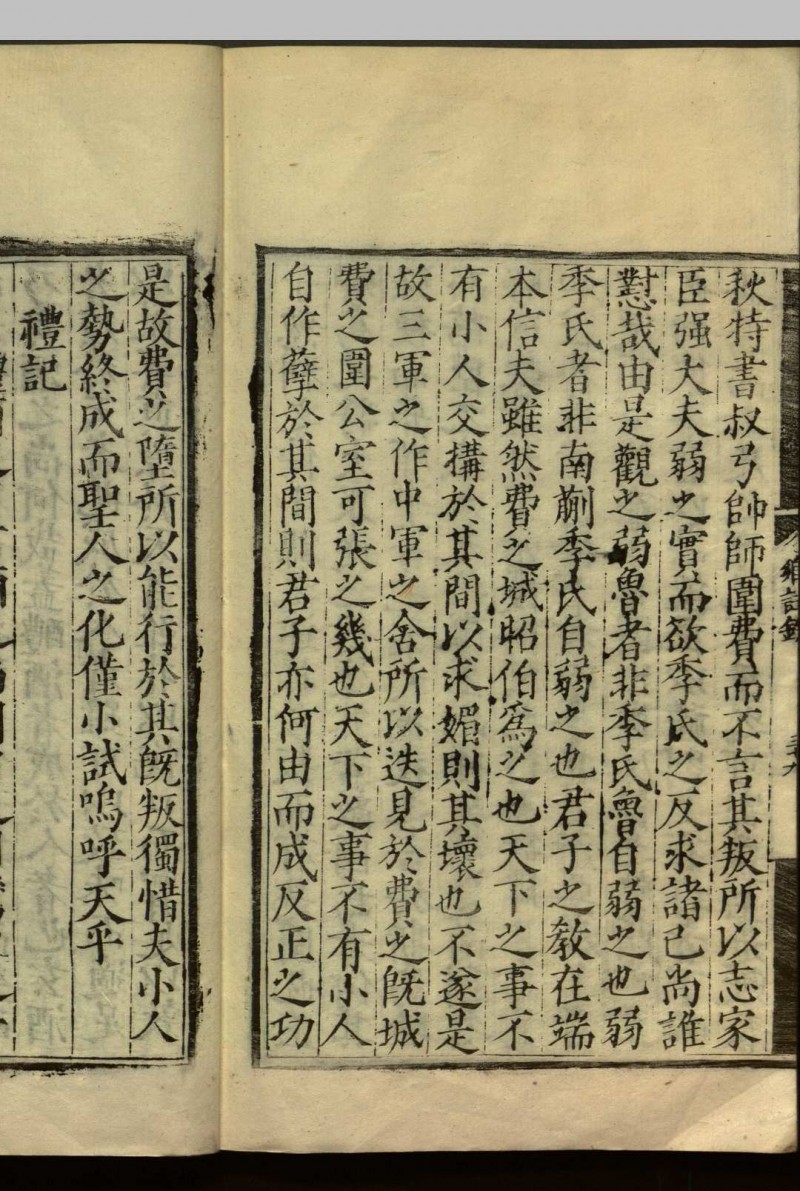 秋特書叔弓帥師圍費而不言其叛所以志家
臣强大夫弱之實而欲季氏之反求諸己尚誰
懟哉由是觀之弱魯者非季氏魯自弱之也弱
季氏者非南蒯季氏自弱之也君子之教在端
本信夫雖然費之城昭伯爲之也天下之事不
有小人交搆於其間以求媚則其壞也不遂是
故三軍之作中軍之舍所以迭見於費之旣城
費之圍公室可張之幾也天下之事不有小人
自作孽於其間則君子亦何由而成反正之功
是故費之墮所以能行於其旣叛獨惜夫小人
之勢終成而聖人之化僅小試嗚呼天乎
禮記